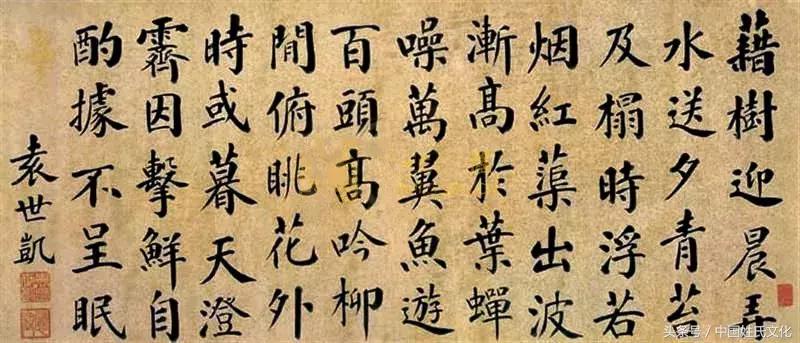 藉樹迎晨
水送夕青
及榻時浮若
烟紅蕖出波
漸髙於葉蟬
噪萬翼魚遊
百頭髙吟柳
閒俯眺花外
時或暮天澄
霽因擊鮮自
酌據不呈眠
袁世凱
头条号／中国姓氏文化